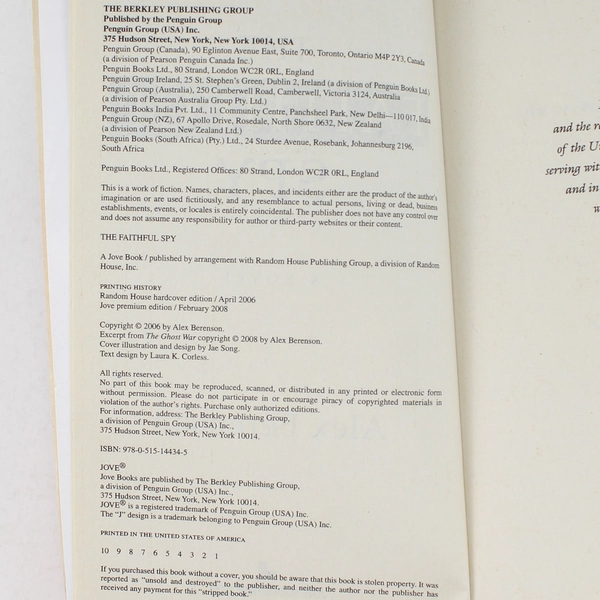 THE BERKLEY PUBLISHING GROUP
Published by the Penguin Group
Penguin Group (USA) Inc.
375 Hudson Street, New York, New York 10014, USA
Penguin Group (Canada), 90 Eglinton Avenue East, Suite 700, Toronto, Ontario M4P 2Y3, Canada
(a division of Pearson Penguin Canada Inc.)
Penguin Books Ltd., 80 Strand, London WC2R 0RL, England
Penguin Group Ireland, 25 St. Stephen's Green, Dublin 2, Ireland (a division of Penguin Books Ltd.)
Penguin Group (Australia), 250 Camberwell Road, Camberwell, Victoria 3124, Australia
(a division of Pearson Australia Group Pty. Ltd.)
Penguin Books India Pvt. Ltd., 11 Community Centre, Panchsheel Park, New Delhi—110 017, India
Penguin Group (NZ), 67 Apollo Drive, Rosedale, North Shore 0632, New Zealand
(a division of Pearson New Zealand Ltd.)
Penguin Books (South Africa) (Pty.) Ltd., 24 Sturdee Avenue, Rosebank, Johannesburg 2196,
South Africa
Penguin Books Ltd., Registered Offices: 80 Strand, London WC2R 0RL, England
This is a work of fiction. Names, characters, places, and incidents either are the product of the author's
imagination or are used fictitiously, and any resemblance to actual persons, living or dead, business
establishments, events, or locales is entirely coincidental. The publisher does not have any control over
and does not assume any responsibility for author or third-party websites or their content.
THE FAITHFUL SPY
A Jove Book / published by arrangement with Random House Publishing Group, a division of Random
House, Inc.
PRINTING HISTORY
Random House hardcover edition / April 2006
Jove premium edition / February 2008
Copyright © 2006 by Alex Berenson.
Excerpt from The Ghost War copyright © 2008 by Alex Berenson.
Cover illustration and design by Jae Song.
Text design by Laura K. Corless.
All rights reserved.
No part of this book may be reproduced, scanned, or distributed in any printed or electronic form
without permission. Please do not participate in or encourage piracy of copyrighted materials in
violation of the author's rights. Purchase only authorized editions.
For information, address: The Berkley Publishing Group,
a division of Penguin Group (USA) Inc.,
375 Hudson Street, New York, New York 10014.
ISBN: 978-0-515-14434-5
JOVE®
Jove Books are published by The Berkley Publishing Group,
a division of Penguin Group (USA) Inc.,
375 Hudson Street, New York, New York 10014.
JOVE® is a registered trademark of Penguin Group (USA) Inc.
The "J" design is a trademark belonging to Penguin Group (USA) Inc.
PRINTED IN THE UNITED STATES OF AMERICA
10 9 8 7 6 5 4 3 2 1
If you purchased this book without a cover, you should be aware that this book is stolen property. It was
reported as "unsold and destroyed" to the publisher, and neither the author nor the publisher has
received any payment for this "stripped book."
and the
of the
serving
and in